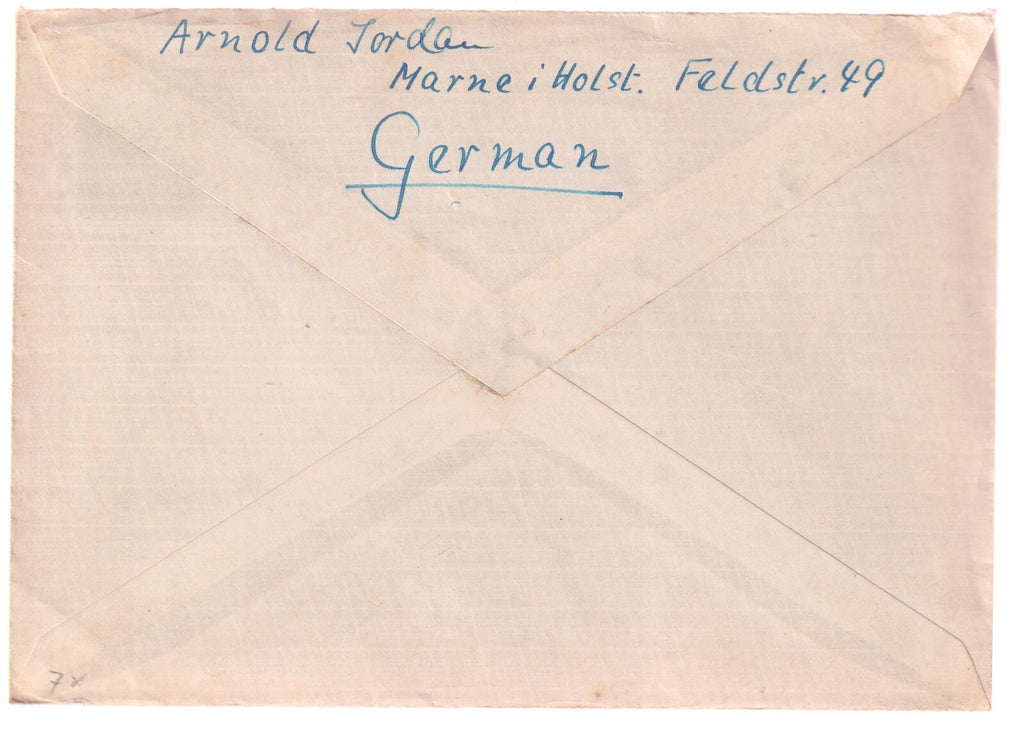 Arnold Jordan
Marne i Holst. Feldstr. 49
German
7x